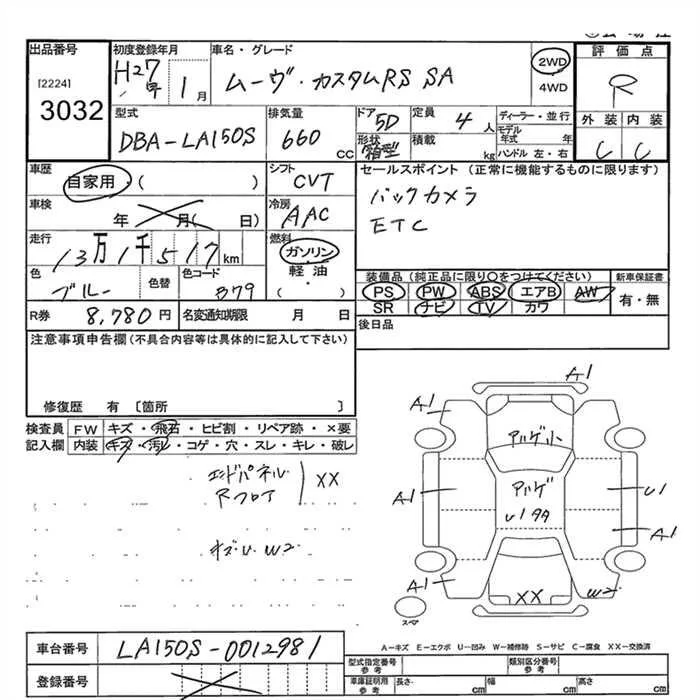 出品番号
[2224]
3032
初度登録年月
H27年 1月
車名・グレード
ムーヴ・カスタムRS SA
2WD
4WD
評価点
R
外装 内装
C C
型式
DBA-LA150S
排気量
660 CC
ドア
5D
形状
箱型
定員
4人
積載
kg
ディーラー・並行
モデル年式 年
ハンドル 左・右
車歴
自家用・( )
シフト
CVT
車検
年 月( 日)
冷房
AAC
走行
13万1千517km
燃料
ガソリン
軽油
( ・ )
色
ブルー
色替
色コード
B79
R券 8,780円
名変通知期限 月 日
セールスポイント (正常に機能するものに限ります)
バックカメラ
ETC
装備品(純正品に限り○をつけてください)
PS PW ABS エアB AW
SR ナビ TV カワ
新車保証書
有・無
後日品
注意事項申告欄(不具合内容等は具体的に記入して下さい)
修復歴 有 〔箇所 〕
検査員記入欄
FW キズ・飛石・ヒビ割・リペア跡・×要
内装 キズ・汚れ・コゲ・穴・スレ・キレ・破レ
エンドパネル
Rフロア
XX
キズ・U W2
A1
A1
アルゲ小
アルゲ
A1
U1
U1タタ
A1
A1
XX
W2
スペア
A-キズ E-エクボ U-凹み W-補修跡 S-サビ C-腐食 XX-交換済
車台番号 LA150S-0012981
登録番号
型式指定番号 参考
類別区分番号 参考
車庫証明用 参考
長さ cm 幅 cm 高さ cm